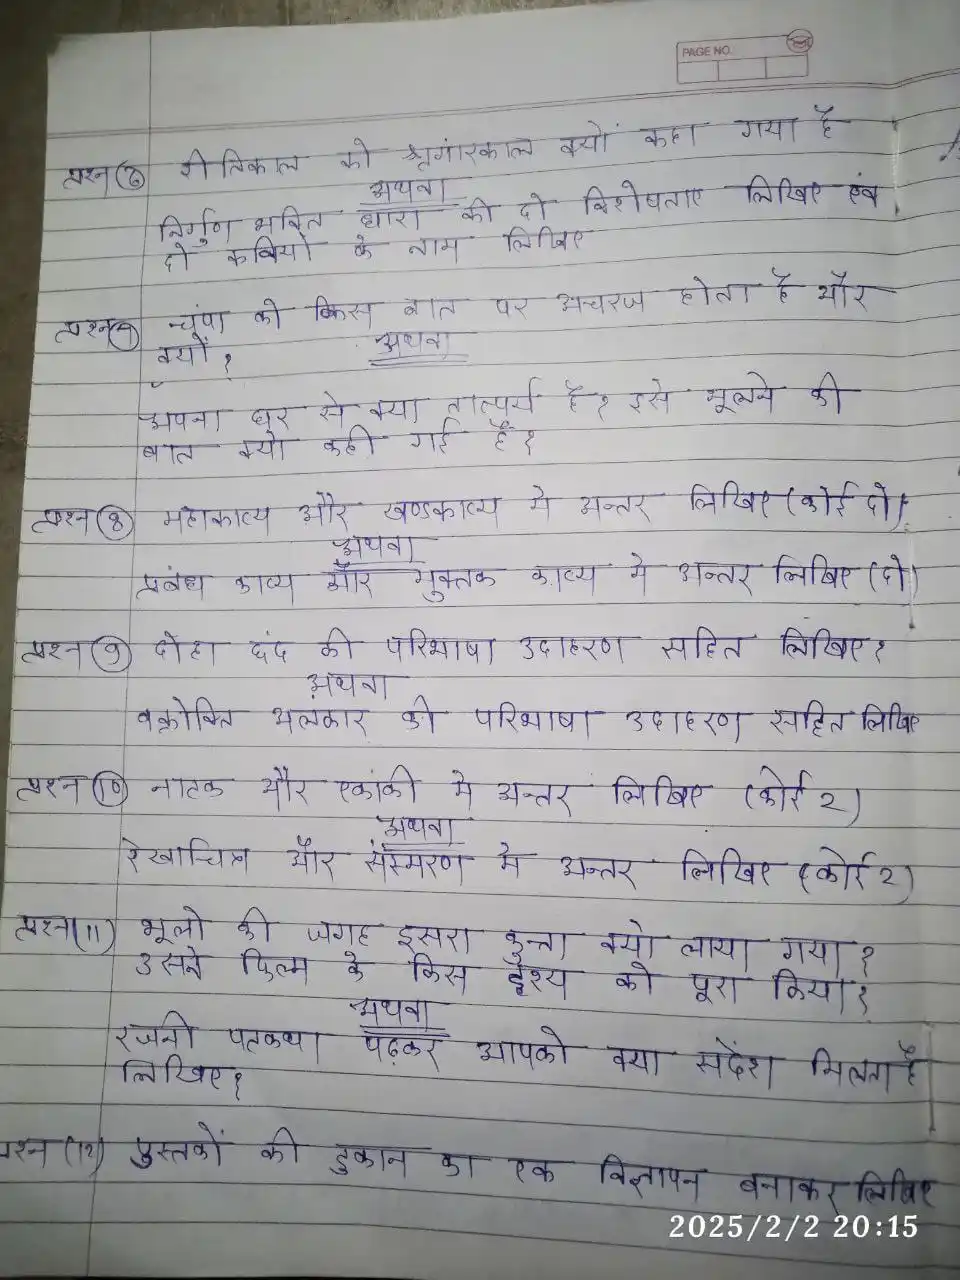 PAGE NO.
प्रश्न (6) रीतिकाल को श्रृगांरकाल क्यों कहा गया है
अथवा
निर्गुण भक्ति धारा की दो विशेषताए लिखिए एंव
दो कवियों के नाम लिखिए
प्रश्न (7) चंपा को किस बात पर अचरज होता है और
क्यों ?
अथवा
अपना घर से क्या तात्पर्य है ? इसे भूलने की
बात क्यो कही गई है ?
प्रश्न (8) महाकाव्य और खण्डकाव्य मे अन्तर लिखिए (कोई दो)
अथवा
प्रबंध काव्य और मुक्तक काव्य मे अन्तर लिखिए (दो)
प्रश्न (9) दोहा छंद की परिभाषा उदाहरण सहित लिखिए ?
अथवा
वक्रोक्ति अलंकार की परिभाषा उदाहरण सहित लिखिए
प्रश्न (10) नाटक और एकांकी मे अन्तर लिखिए (कोई 2)
अथवा
रेखाचित्र और संस्मरण मे अन्तर लिखिए (कोई 2)
प्रश्न (11) भूलो की जगह दूसरा कुत्ता क्यो लाया गया ?
उसने फिल्म के किस दृश्य को पूरा किया ?
अथवा
रजनी पटकथा पढ़कर आपको क्या संदेश मिलता है
लिखिए ?
प्रश्न (12) पुस्तकों की दुकान का एक विज्ञापन बनाकर लिखिए
2025/2/2 20:15